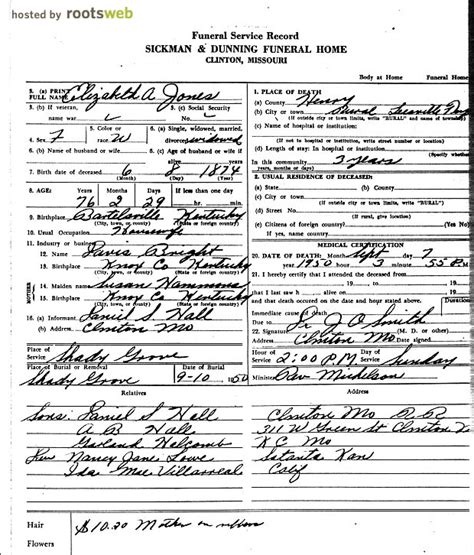 hosted by rootsweb
Funeral Service Record
SICKMAN & DUNNING FUNERAL HOME
CLINTON, MISSOURI
Body at Home Funeral Home
3. (a) PRINT FULL NAME Elizabeth A. Jones
3. (b) If veteran, name war
3. (c) Social Security No.
4. Sex F
5. Color or race W
6. (a) Single, widowed, married, divorced widowed
6. (b) Name of husband or wife
6. (c) Age of husband or wife if alive
7. Birth date of deceased 6 8 1874
(Month) (Day) (Year)
8. AGE: Years Months Days If less than one day
76 2 29 hr. min.
9. Birthplace Kentucky
(City, town, or county) (State or foreign country)
10. Usual Occupation Housewife
11. Industry or business
12. Name Davis Bright
13. Birthplace Knox Co Kentucky
(City, town, or county) (State or foreign country)
MOTHER
14. Maiden name Susan Hammons
15. Birthplace Knox Co Kentucky
16. (a) Informant Daniel S Hall
(b) Address Clinton Mo
Place of Service Shady Grove
Place of Burial or Removal Date of Burial
Shady Grove 9-10 1950
1. PLACE OF DEATH:
(a) County Henry
(b) City or town Rural
(If outside city or town limits, write "RURAL" and name of township)
(c) Name of hospital or institution:
(If not in hospital or institution, write street number or location)
(d) Length of stay: In hospital or institution
(Specify whether
In this community 3 years
years, months or days)
2. USUAL RESIDENCE OF DECEASED:
(a) State (b) County
(c) City or town
(If outside city or town limits, write "RURAL")
(d) Street No.
(If rural, give location)
(e) Citizen of foreign country? (Yes or No)
If yes, name country
MEDICAL CERTIFICATION
20. DATE OF DEATH: Month Sept day 7
year 1950 hour 3 minute 55 P.M.
21. I hereby certify that I attended the deceased from
that I last saw h alive on
and that death occurred on the date and hour stated above.
Immediate cause of death
Due to
22. Signature Dr J O Smith
(M. D. or other)
Address Clinton Mo Date signed
Hour of Service 2:00 P.M. Day of Service Sunday
Minister Rev Mickelson
Relatives Address
Sons. Daniel S Hall Clinton Mo RR
A B Hall 311 W Green St Clinton
Garland Holcomb K C Mo
Nancy Jane Lowe Satanta Kan
Ida Mae Villarreal Calif
Hair
Flowers
$10.20 Mother on ribbon